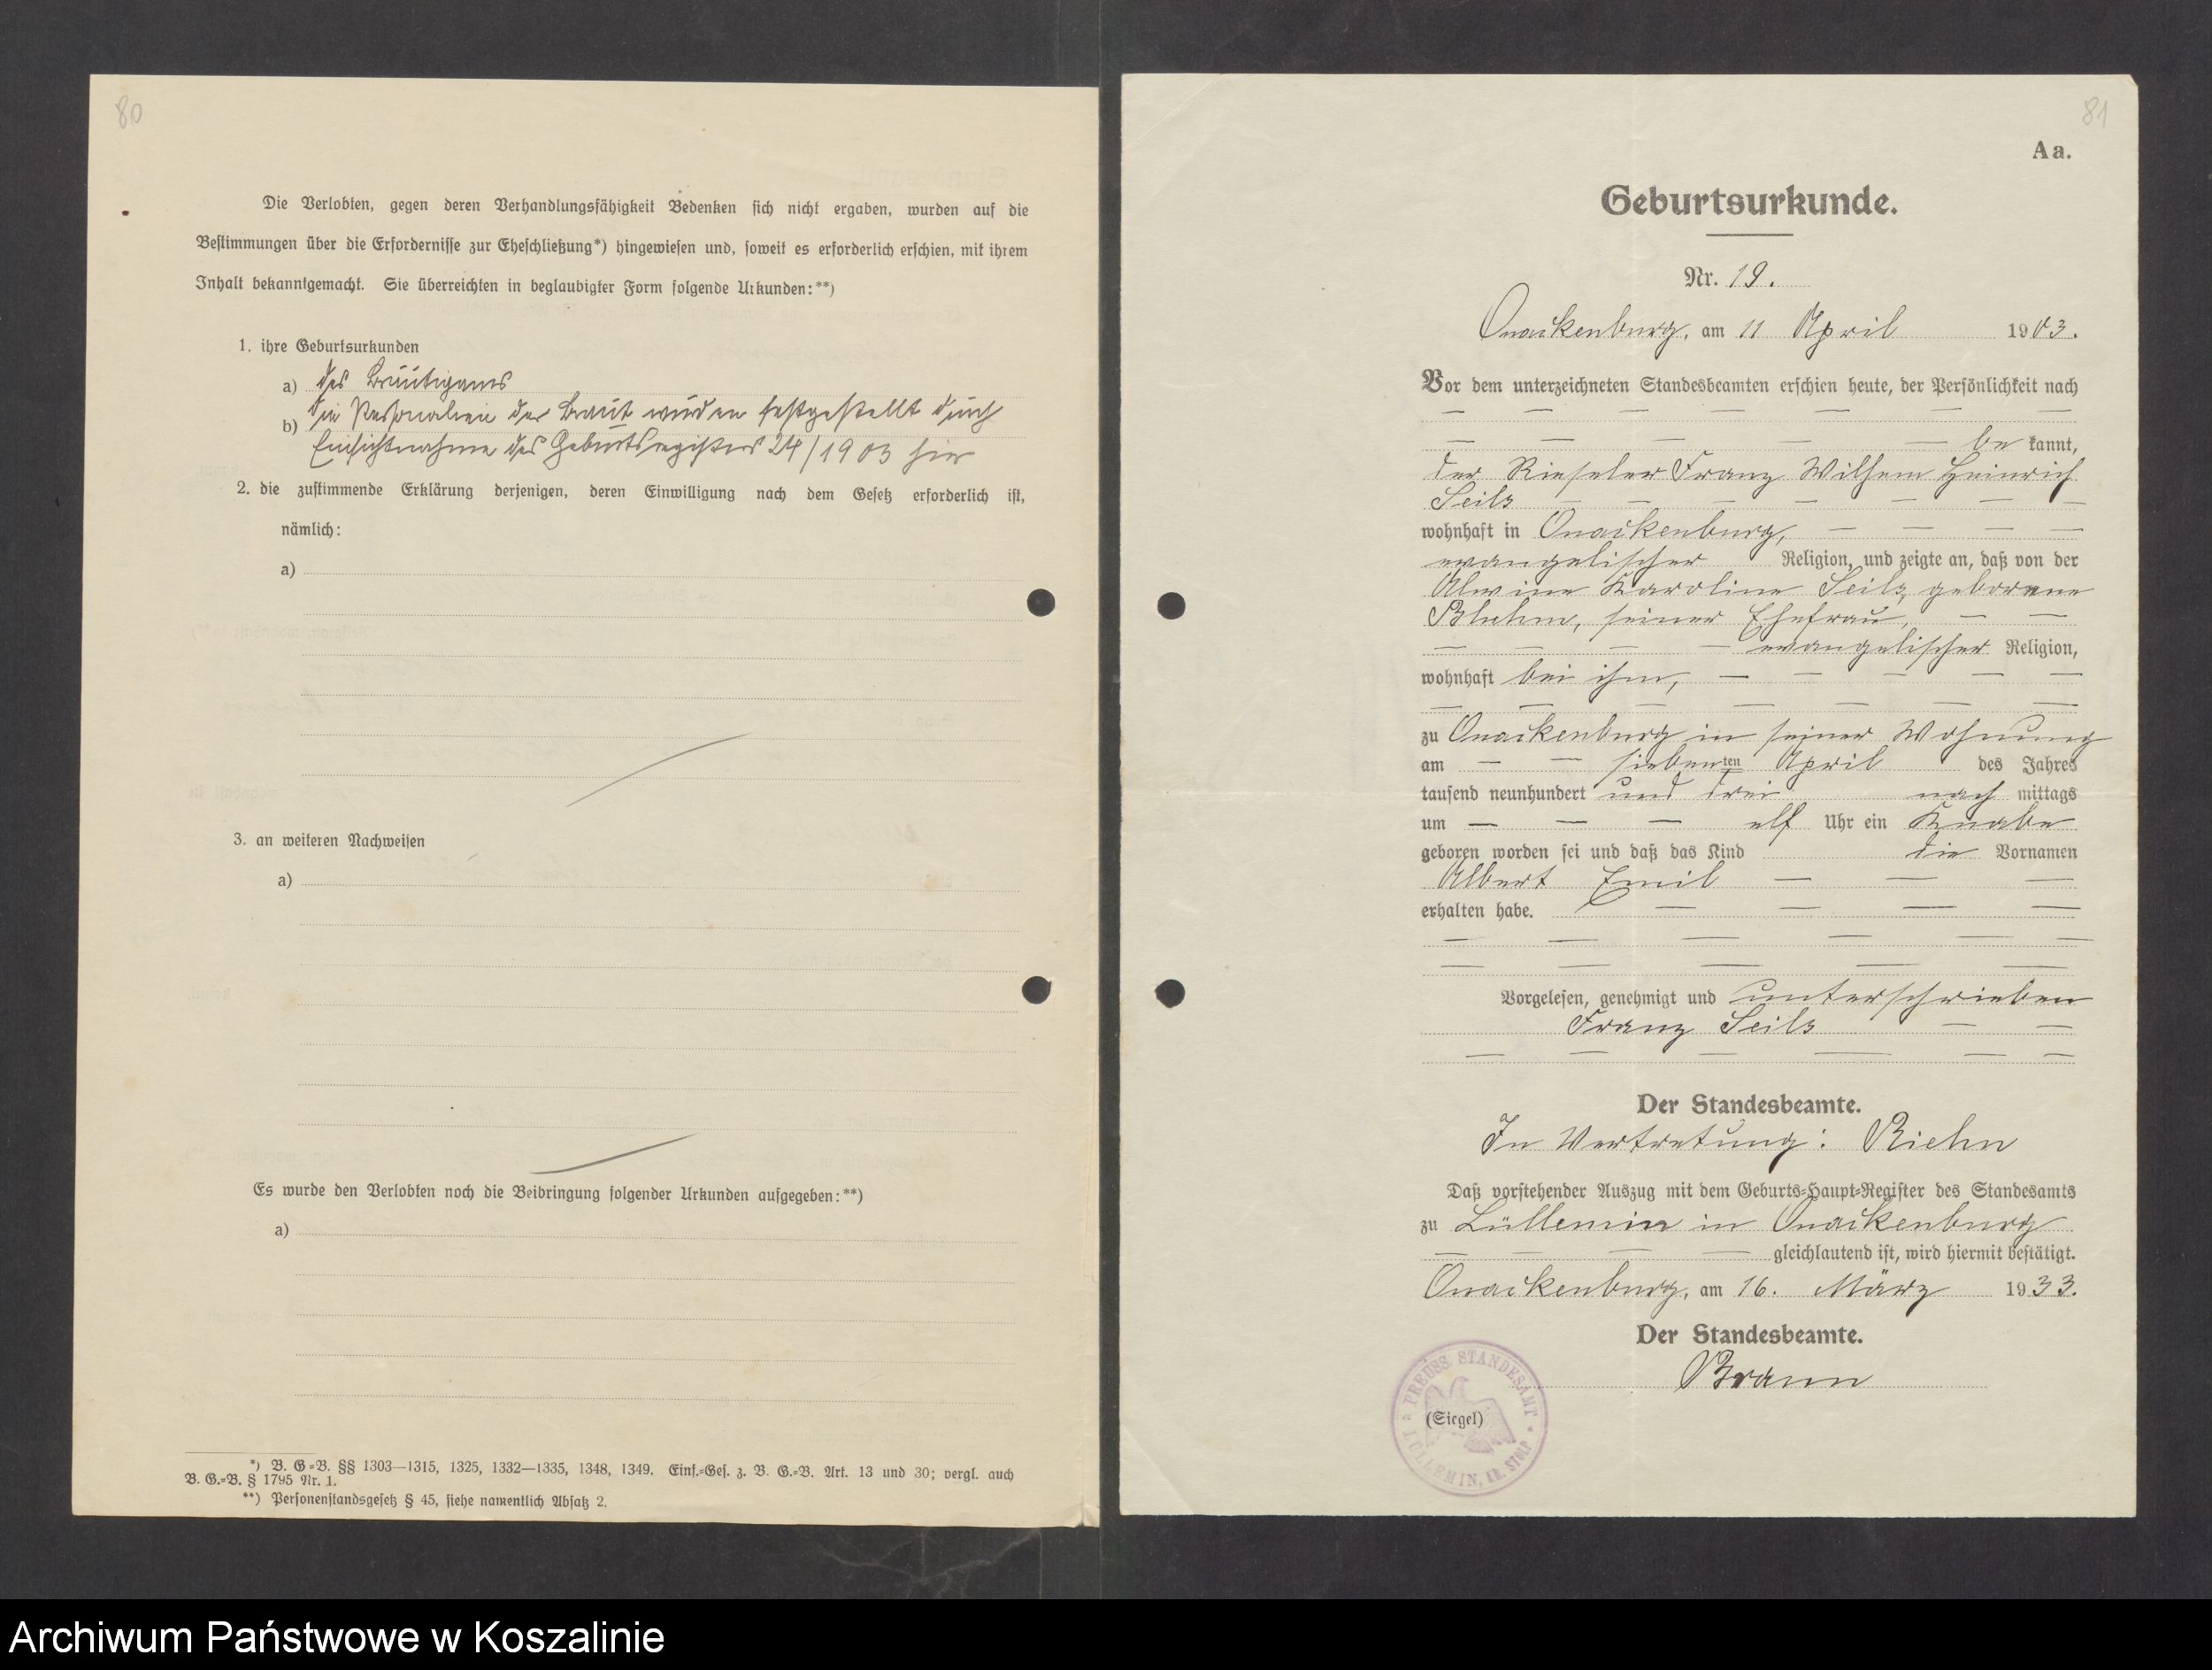 80
Die Verlobten, gegen deren Verhandlungsfähigkeit Bedenken sich nicht ergaben, wurden auf die
Bestimmungen über die Erfordernisse zur Eheschließung*) hingewiesen und, soweit es erforderlich erschien, mit ihrem
Inhalt bekanntgemacht. Sie überreichten in beglaubigter Form folgende Urkunden:**)
1. ihre Geburtsurkunden
a) des Bräutigams
b) die Personalien der Braut wurden festgestellt durch
Einsichtnahme des Geburtsregisters 24/1903 hier
2. die zustimmende Erklärung derjenigen, deren Einwilligung nach dem Gesetz erforderlich ist,
nämlich:
a)
3. an weiteren Nachweisen
a)
Es wurde den Verlobten noch die Beibringung folgender Urkunden aufgegeben:**)
a)
*) B. G=B. §§ 1303—1315, 1325, 1332—1335, 1348, 1349. Einf.=Ges. z. B. G.=B. Art. 13 und 30; vergl. auch
B. G.=B. § 1795 Nr. 1.
**) Personenstandsgesetz § 45, siehe namentlich Absatz 2.
81
Aa.
Geburtsurkunde.
Nr. 19.
Quackenburg, am 11 April 1903.
Vor dem unterzeichneten Standesbeamten erschien heute, der Persönlichkeit nach
be kannt,
der Rieseler Franz Wilhem Heinrich
Seils
wohnhaft in Quackenburg,
evangelischer Religion, und zeigte an, daß von der
Alwine Karoline Seils, geborene
Bluhm, seiner Ehefrau,
evangelischer Religion,
wohnhaft bei ihm,
zu Quackenburg in seiner Wohnung
am siebenten April des Jahres
tausend neunhundert und drei nach mittags
um elf Uhr ein Knabe
geboren worden sei und daß das Kind die Vornamen
Albert Emil
erhalten habe.
Vorgelesen, genehmigt und unterschrieben
Franz Seils
Der Standesbeamte.
In Vertretung: Riehn
Daß vorstehender Auszug mit dem Geburts=Haupt=Register des Standesamts
zu Lüllemin in Quackenburg
gleichlautend ist, wird hiermit bestätigt.
Quackenburg, am 16. März 1933.
Der Standesbeamte.
Braun
(Siegel)
PREUSS. STANDESAMT
LÜLLEMIN, KR. STOLP
Archiwum Państwowe w Koszalinie